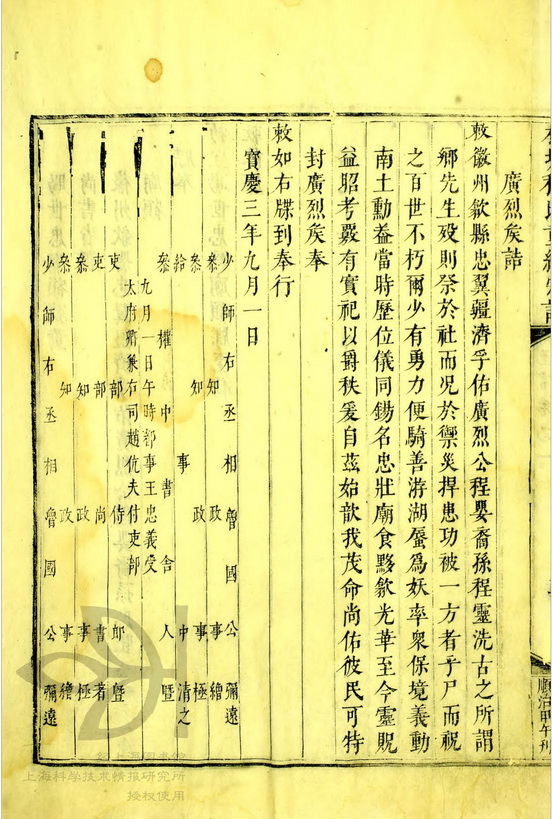 廣烈矦誥
敕徽州歙縣忠翼疆濟孚佑廣烈公程嬰裔孫程靈洗古之所謂
鄉先生歿則祭於社而况於禦災捍患功被一方者乎尸而祝
之百世不朽爾少有勇力便騎善游湖蜃爲妖率衆保境義動
南土勳益當時歷位儀同錫名忠壯廟食黟歙光華至今靈貺
益昭考覈有實祀以爵秩爰自茲始歆我茂命尚佑彼民可特
封廣烈矦奉
敕如右牒到奉行
寳慶三年九月一日
少師右丞相魯國公彌遠
叅知政事繒
叅知政事極
給事中清之
叅權中書舍人暨
九月一日午時都事王忠義受
太府卿兼右司趙伉夫付吏部
吏部侍郎暨
吏部尚書著
叅知政事極
叅知政事繒
少師右丞相魯國公彌遠
順治甲午刊
上海图书馆
上海科学技术情报研究所
授权使用